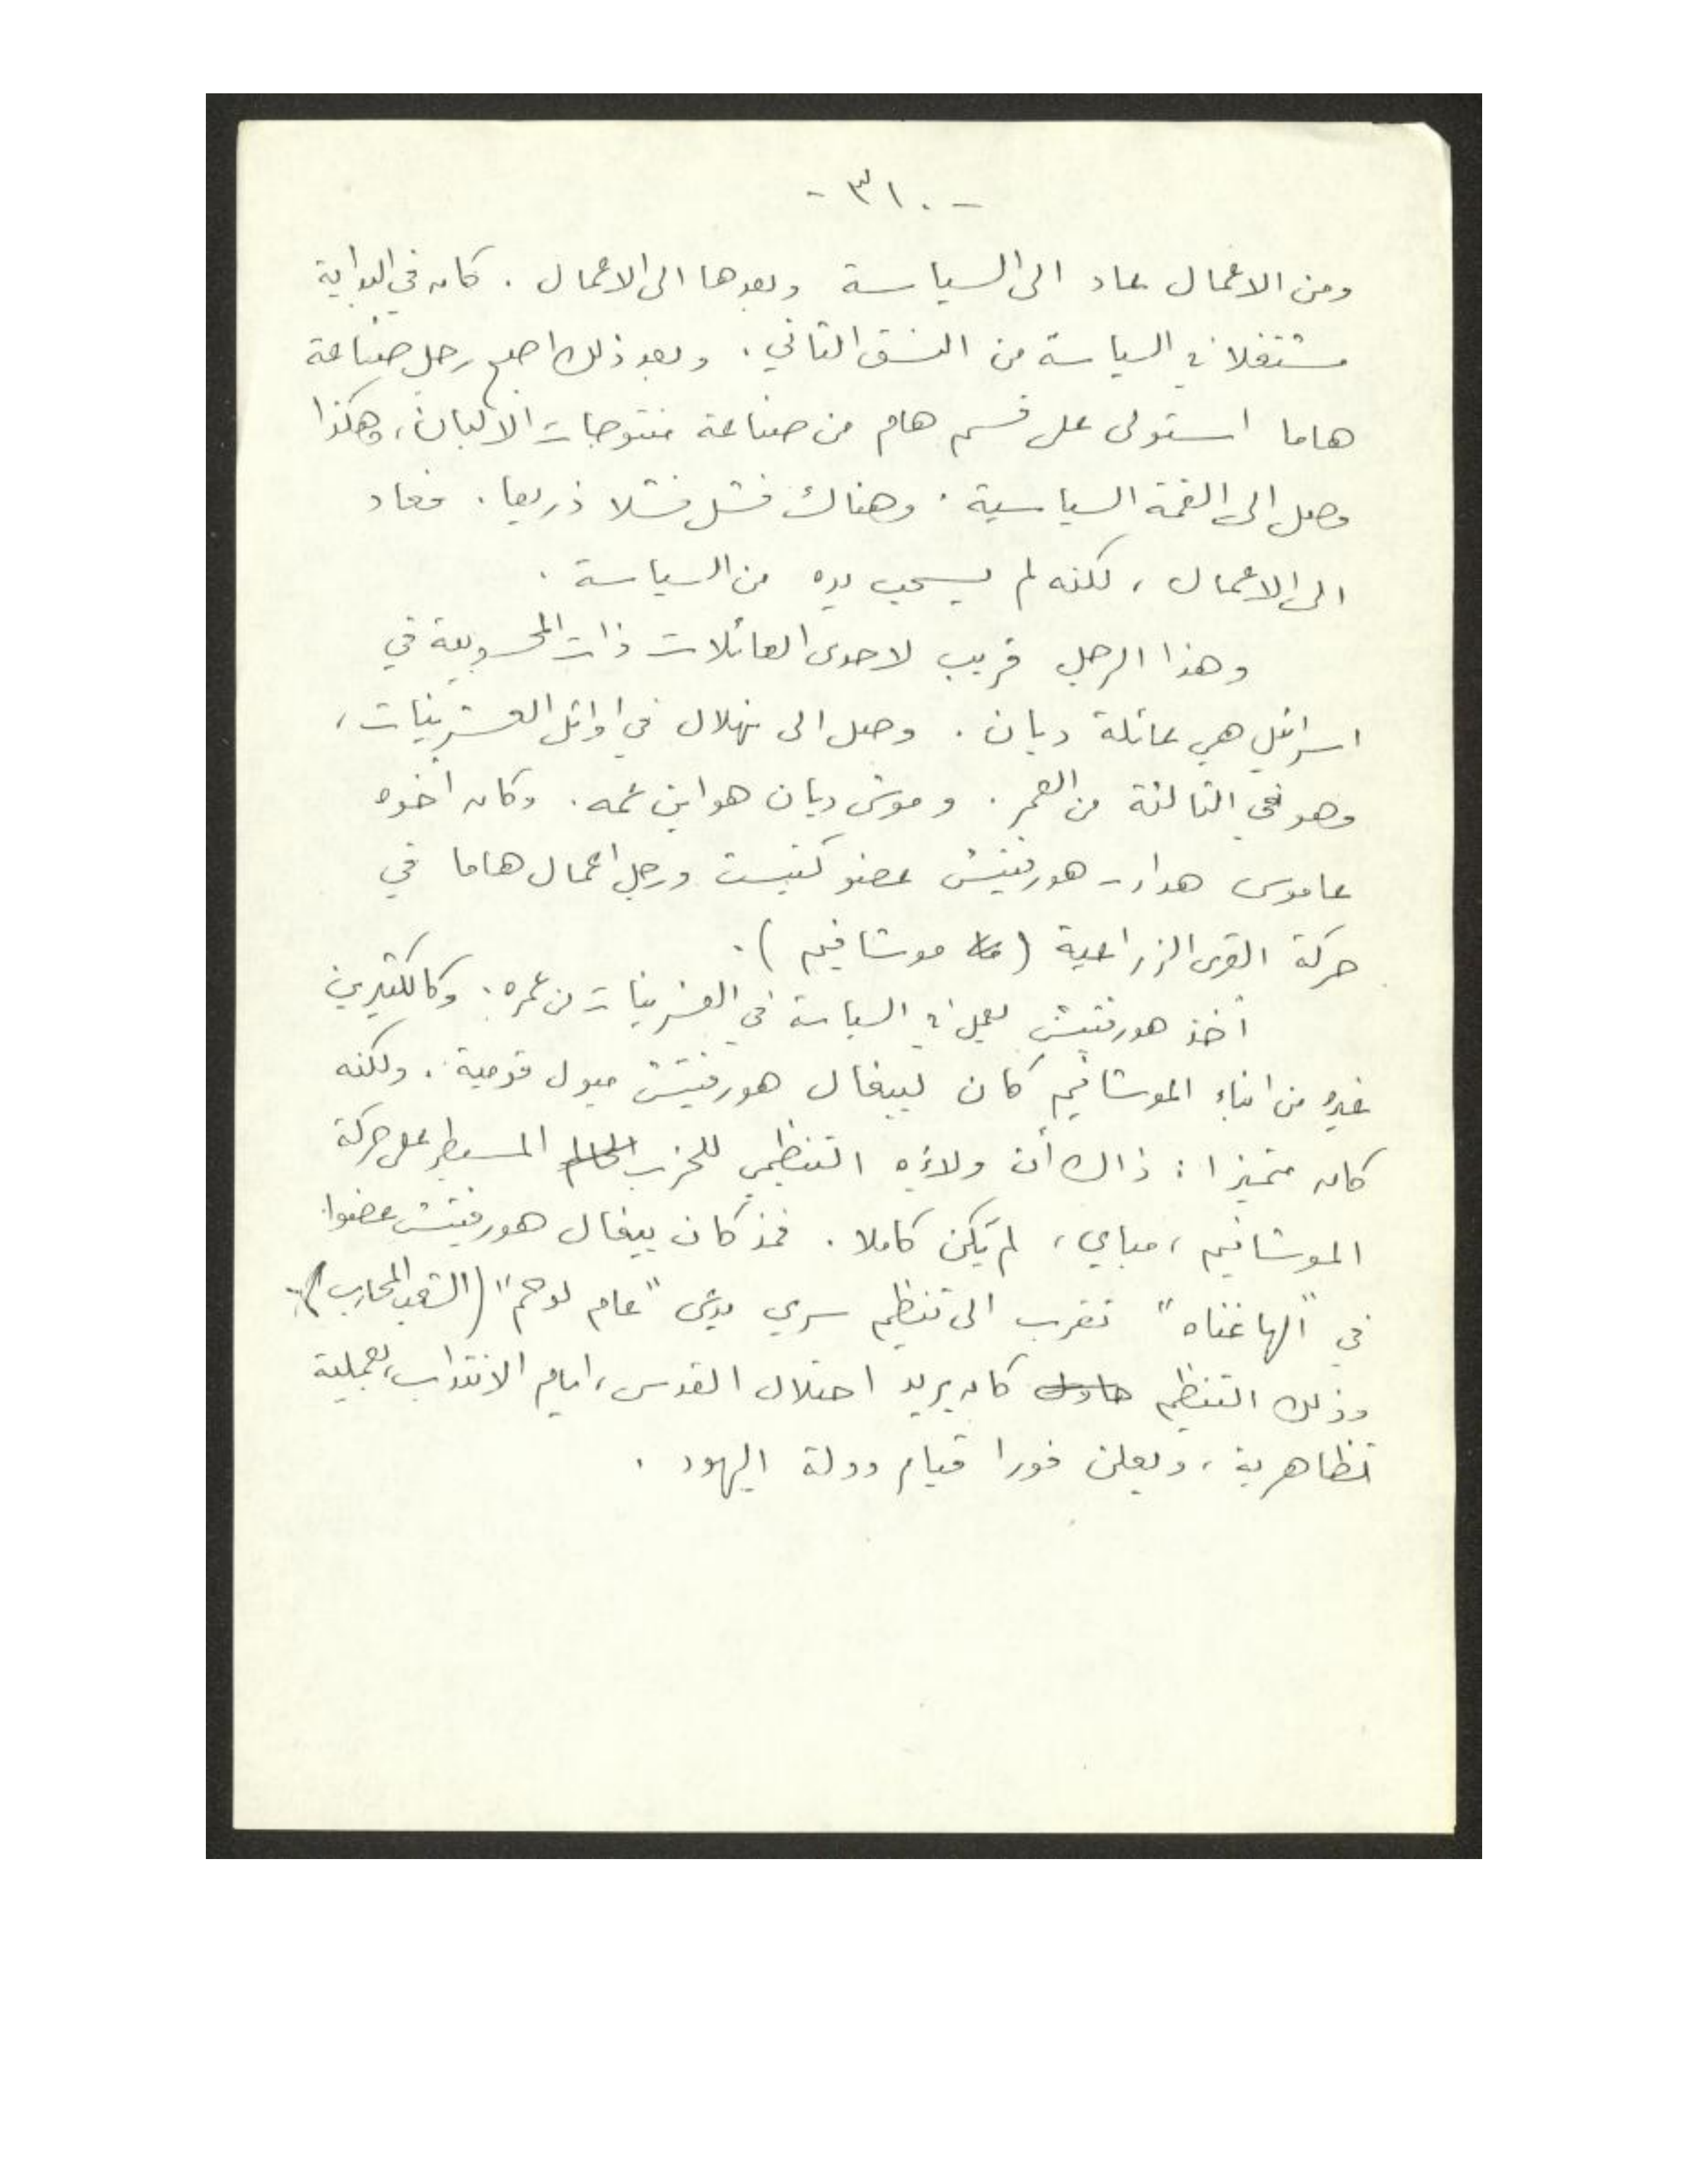 - ٣١٠ -
ومن الاعمال عاد الى السياسة وبعدها الى الاعمال . كان في البداية
مشتغلا في السياسة من النسق الثاني . وبعد ذلك اصبح رجل صناعة
هاما استولى على قسم هام من صناعة منتوجات الألبان ، وهكذا
وصل الى القمة السياسية . وهناك فشل فشلا ذريعا . فعاد
الى الاعمال ، لكنه لم يسحب يده من السياسة .
وهذا الرجل قريب لاحدى العائلات ذات المحسوبية في
اسرائيل هي عائلة ديان . وصل الى نهلال في اوائل العشرينات ،
وهو في الثالثة من العمر . وموشى ديان هو ابن عمه . وكان أخوه
عاموس هدار - هورفيتش عضو كنيست ورجل اعمال هاما في
حركة القرى الزراعية ( موشافيم ) .
أخذ هورفيتش يعمل في السياسة في العشرينات من عمره . وكالكثيرين
غيره من ابناء الموشافيم كان ليغال هورفيتش ميول قومية . ولكنه
كان متميزا : ذاك أن ولاءه التنظيمي للحزب الحاكم المسيطر على حركة
الموشافيم ، مباي ، لم يكن كاملا . فمذ كان ييغال هورفيتش عضوا
في "الهاغناه" تقرب الى تنظيم سري يدعى "عام لوحم" (الشعب المحارب) .
وذلك التنظيم حاول كان يريد احتلال القدس ، ايام الانتداب ، بعملية
تظاهرية ، ويعلن فورا قيام دولة اليهود .